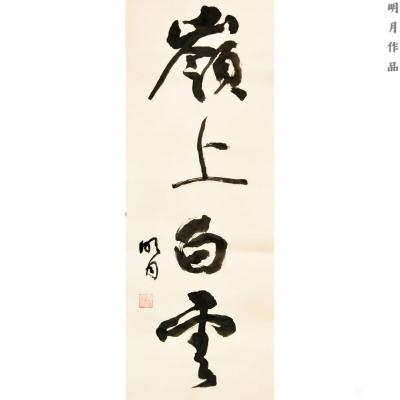 明月作品
嶺上白雲
明月